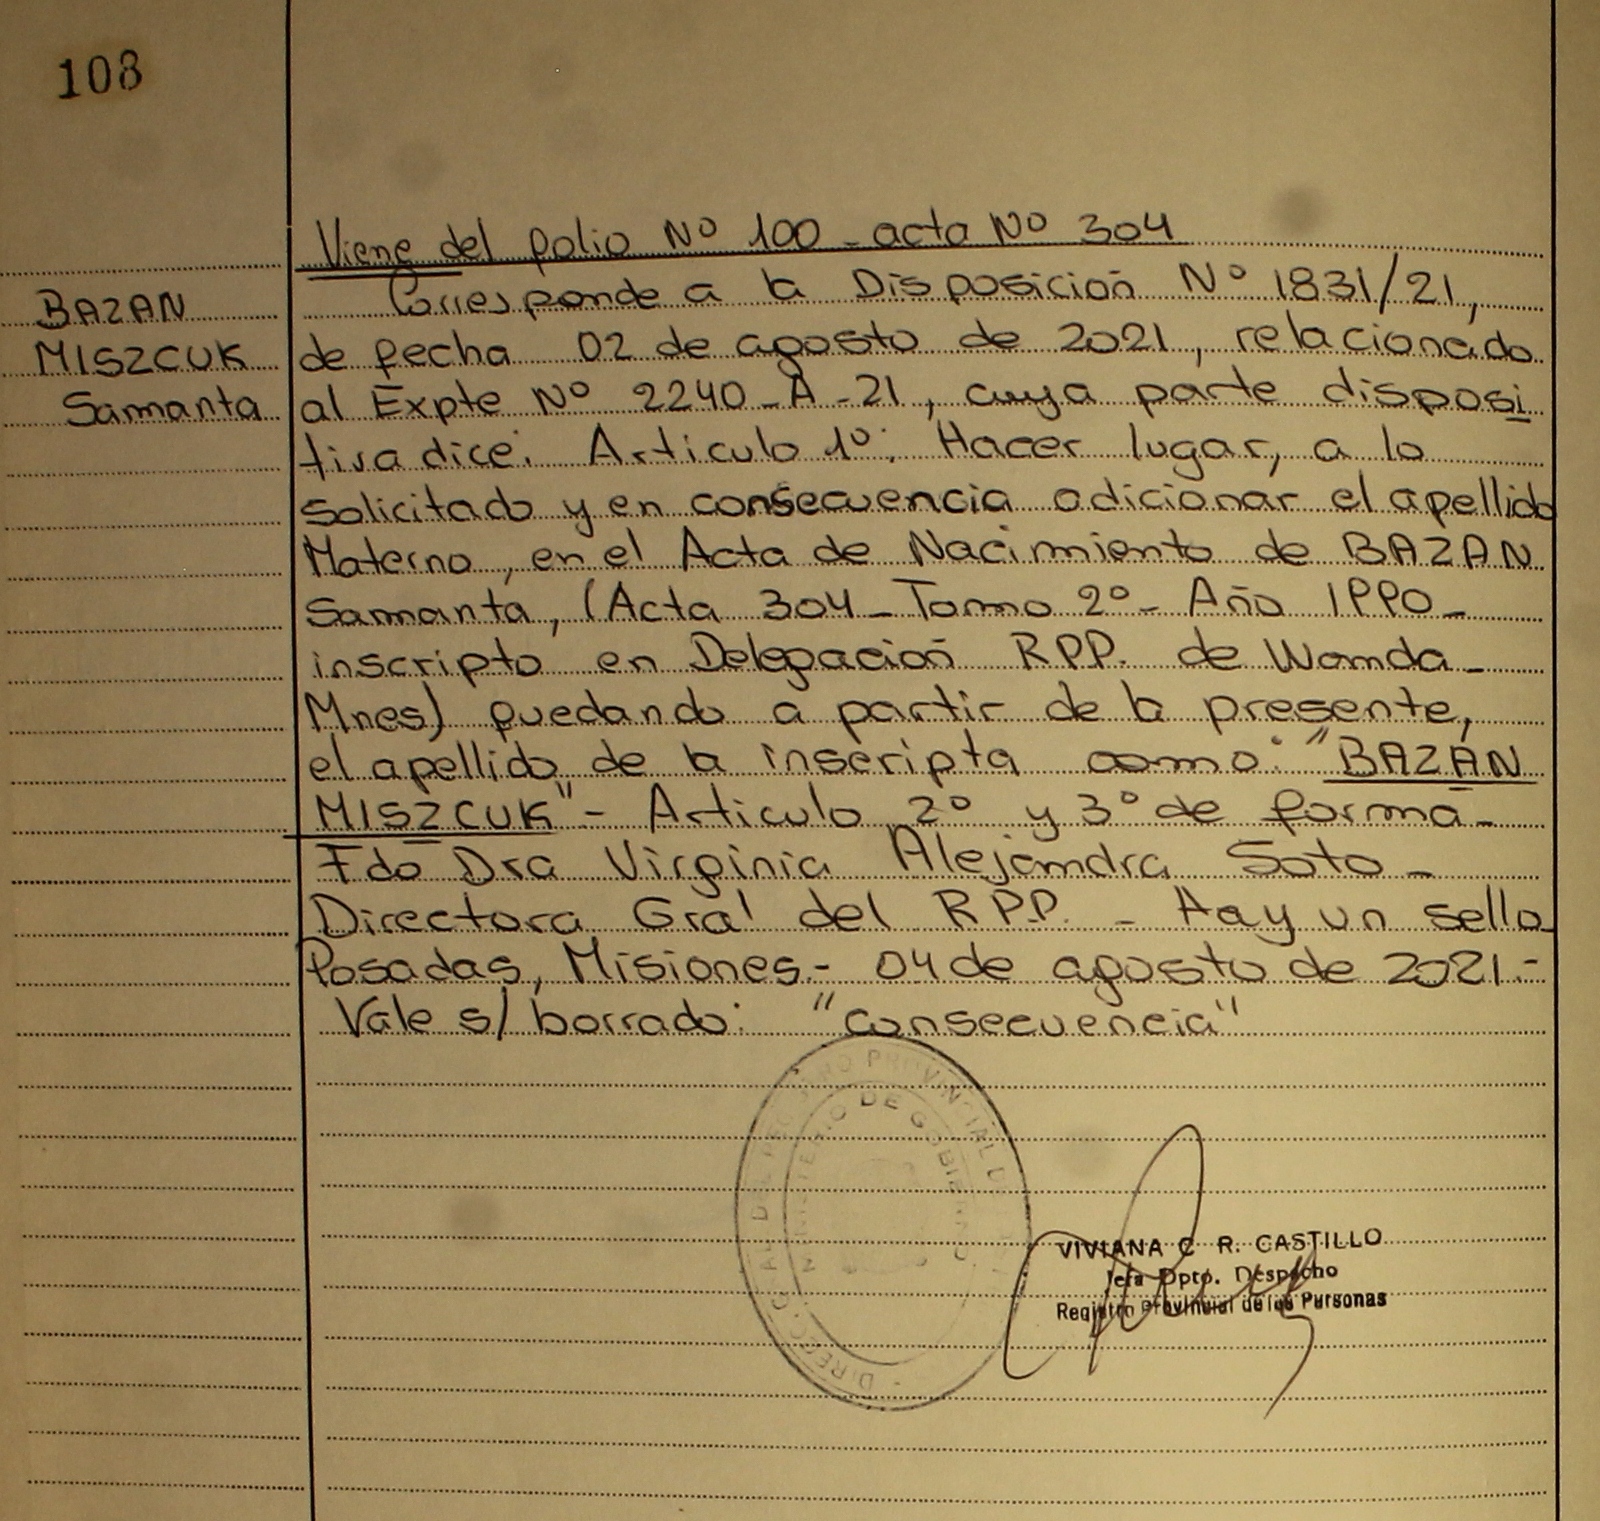 108
Viene del folio Nº 100 - acta Nº 304
BAZAN
MISZCUK
Samanta
Corresponde a la Disposición Nº 1831/21,
de fecha 02 de agosto de 2021, relacionado
al Expte Nº 2240 - A - 21, cuya parte disposi
tiva dice: Articulo 1º: Hacer lugar, a lo
solicitado y en consecuencia adicionar el apellido
Materno, en el Acta de Nacimiento de BAZAN
Samanta, (Acta 304 - Tomo 2º - Año 1990 -
inscripto en Delegación RPP. de Wanda -
Mnes) quedando a partir de la presente,
el apellido de la inscripta como: "BAZÁN
MISZCUK" - Articulo 2º y 3º de forma -
Fdo Dra Virginia Alejandra Soto -
Directora Gral del R.P.P. - Hay un sello
Posadas, Misiones.- 04 de agosto de 2021.-
Vale s/ borrado: "consecuencia"
MINISTERIO DE GOBIERNO
VIVIANA C R. CASTILLO
Jefa Dpto. Despacho
Registro Provincial de las Personas